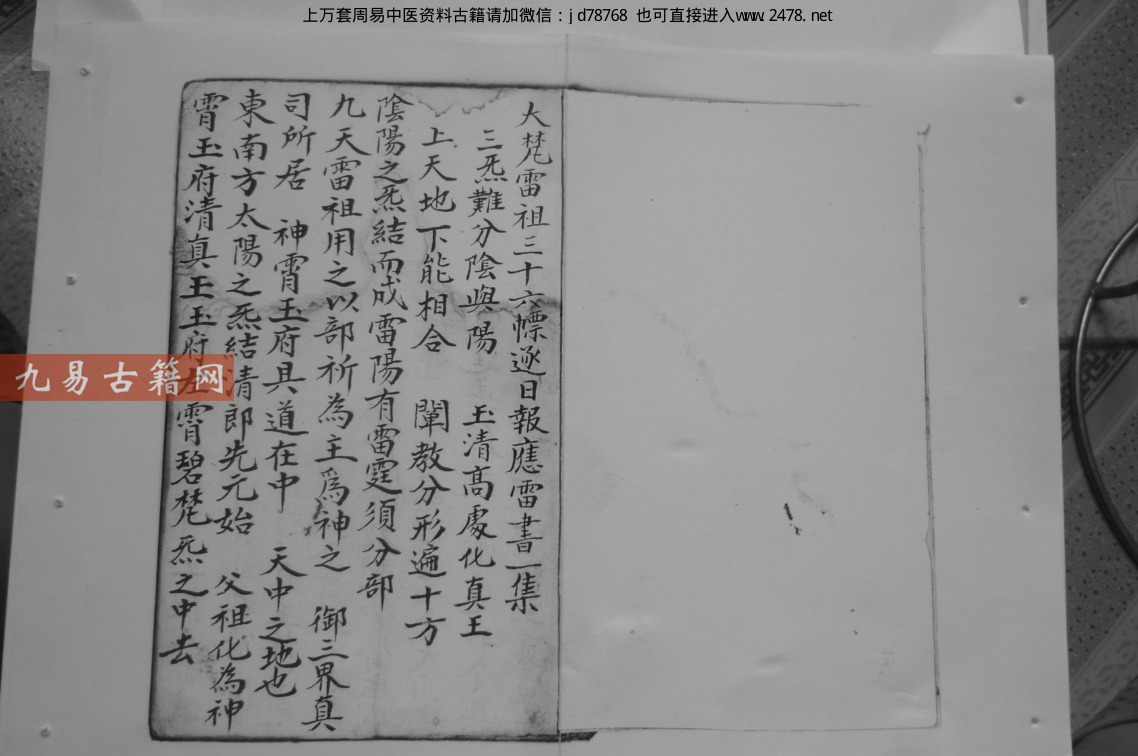 上万套周易中医资料古籍请加微信：jd78768 也可直接进入www.2478.net
大梵雷祖三十六幖逐日報應雷書一集
三炁難分陰與陽 玉清高處化真王
上天地下能相合 闡教分形遍十方
陰陽之炁結而成雷陽有雷霆須分部
九天雷祖用之以部祈為主為神之 御三界真
司所居 神霄玉府具道在中 天中之地也
東南方太陽之炁結清郎先元始 父祖化為神
霄玉府清真王玉府左霄碧梵炁之中去
九易古籍网